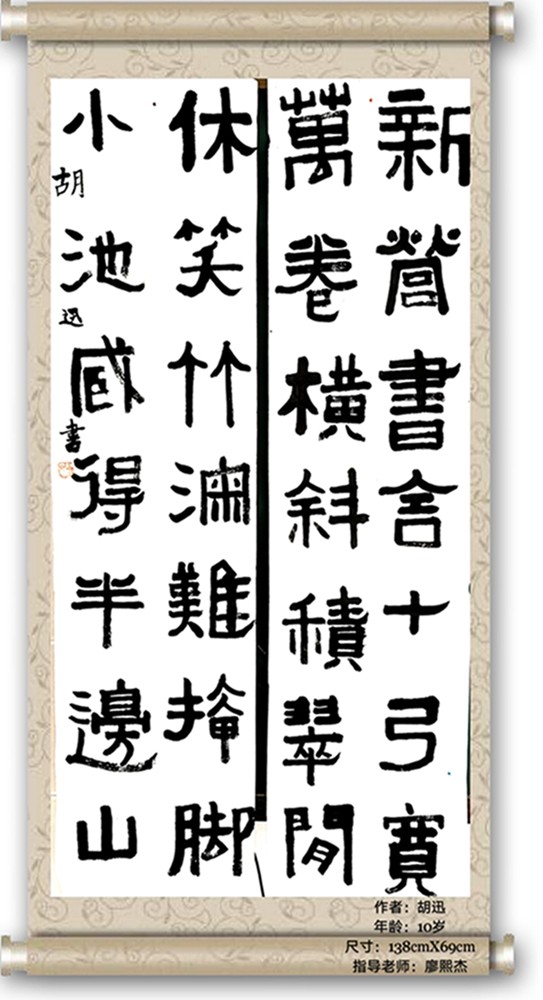 新營書舍十弓寬
萬卷橫斜積翠間
休笑竹瀰難掩脚
小池感得半邊山
胡迅書
作者：胡迅
年龄：10岁
尺寸：138cmX69cm
指导老师：廖熙杰